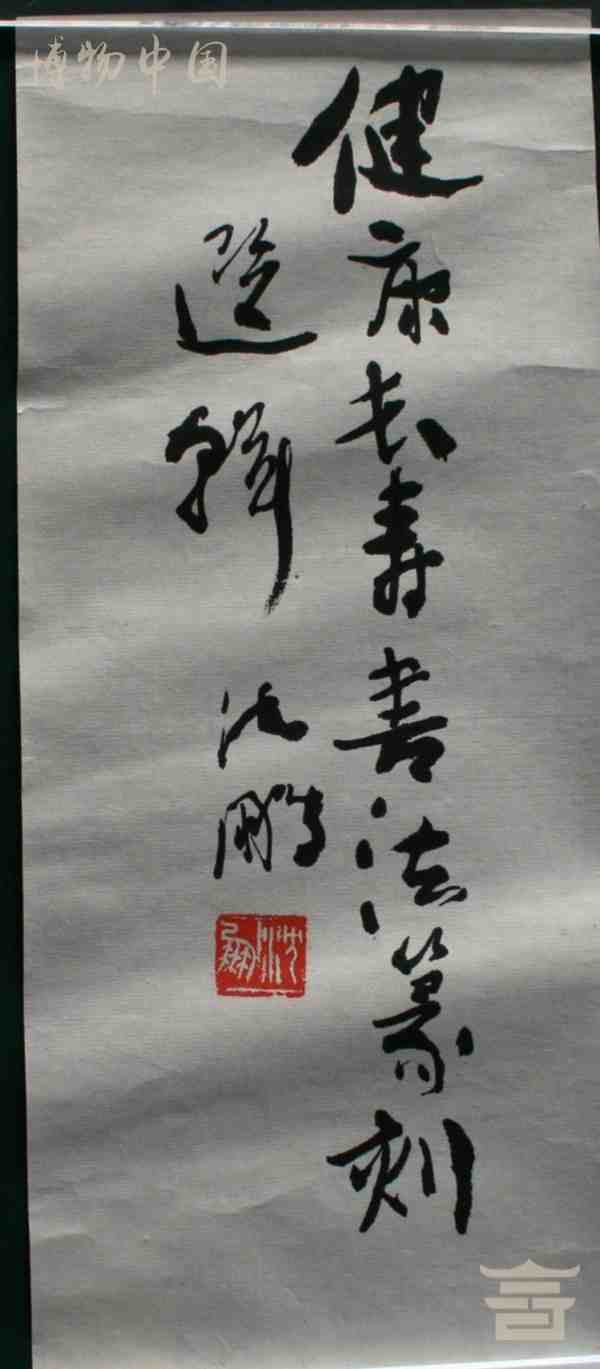 博物中国
健康长寿书法篆刻
选辑
沈鹏
沈鹏